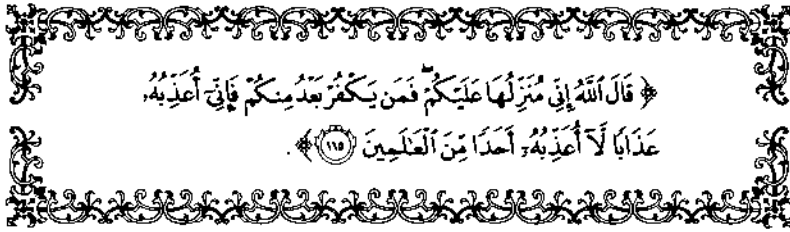 ﴿ قَالَ ٱللَّهُ إِنِّى مُنَزِّلُهَا عَلَيۡكُمۡۖ فَمَن يَكۡفُرۡ بَعۡدُ مِنكُمۡ فَإِنِّىٓ أُعَذِّبُهُۥ
عَذَابٗا لَّآ أُعَذِّبُهُۥٓ أَحَدٗا مِّنَ ٱلۡعَٰلَمِينَ ١١٥ ﴾ .